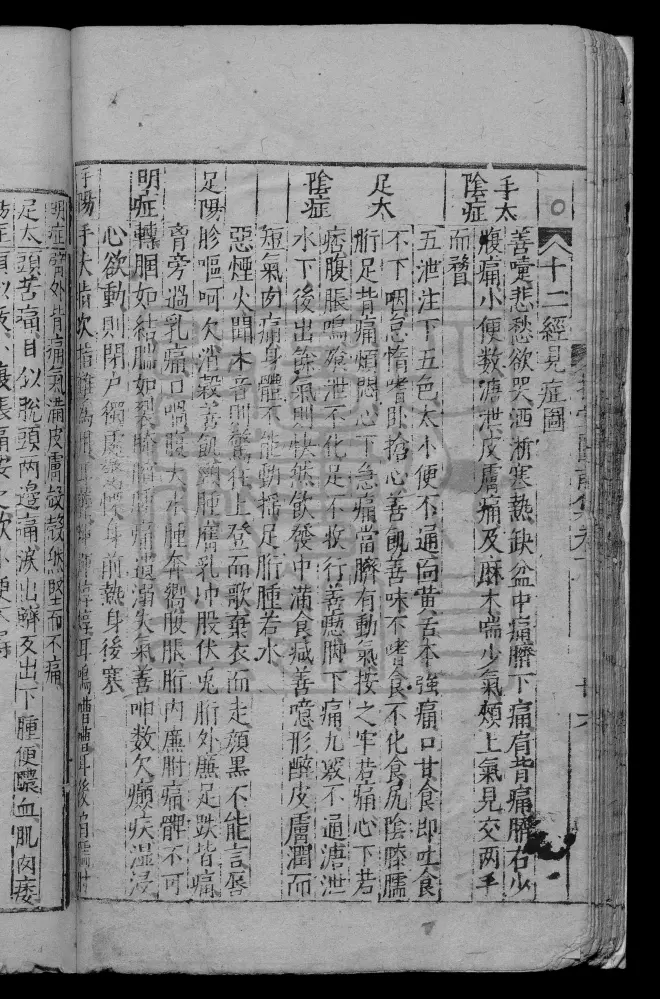 十二經見症圖
手太陰症
善嚏悲愁欲哭洒淅寒熱缺盆中痛臍下痛肩背痛臍右少
腹痛小便數溏泄皮膚痛及麻木喘少氣頰上氣見交两手
而瞀
足太陰症
五泄注下五色大小便不通面黃舌本強痛口甘食即吐食
不下咽怠惰嗜卧搶心善飢善味不嗜食不化食尻陰膝臑
胻足背痛煩悶心下急痛當臍有動氣按之牢若痛心下若
痞腹脹鳴飱泄不化足不收行善瘛脚下痛九竅不通溏泄
水下後出餘氣則快然飲發中滿食减善噫形醉皮膚潤而
短氣肉痛身體不能動摇足胻腫若水
足陽明症
惡煙火聞木音則驚狂上登而歌棄衣而走顔黑不能言唇
胗嘔呵欠消穀善飢頸腫膺乳冲股伏兎胻外廉足跌皆痛
膏旁過乳痛口喎腹大水腫奔嚮腹脹胻内廉胕痛髀不可
轉膕如結腨如裂
遺溺失氣善呻数欠癲疾濕浸
心欲動則閉户獨處
身前熱身後寒
手陽
耳鳴嘈嘈耳後
明症
外背痛氣滿皮膚殼殼然堅而不痛
足太
頭苦痛目似脱頭两邊痛淚出臍反出下腫便膿血肌肉痿